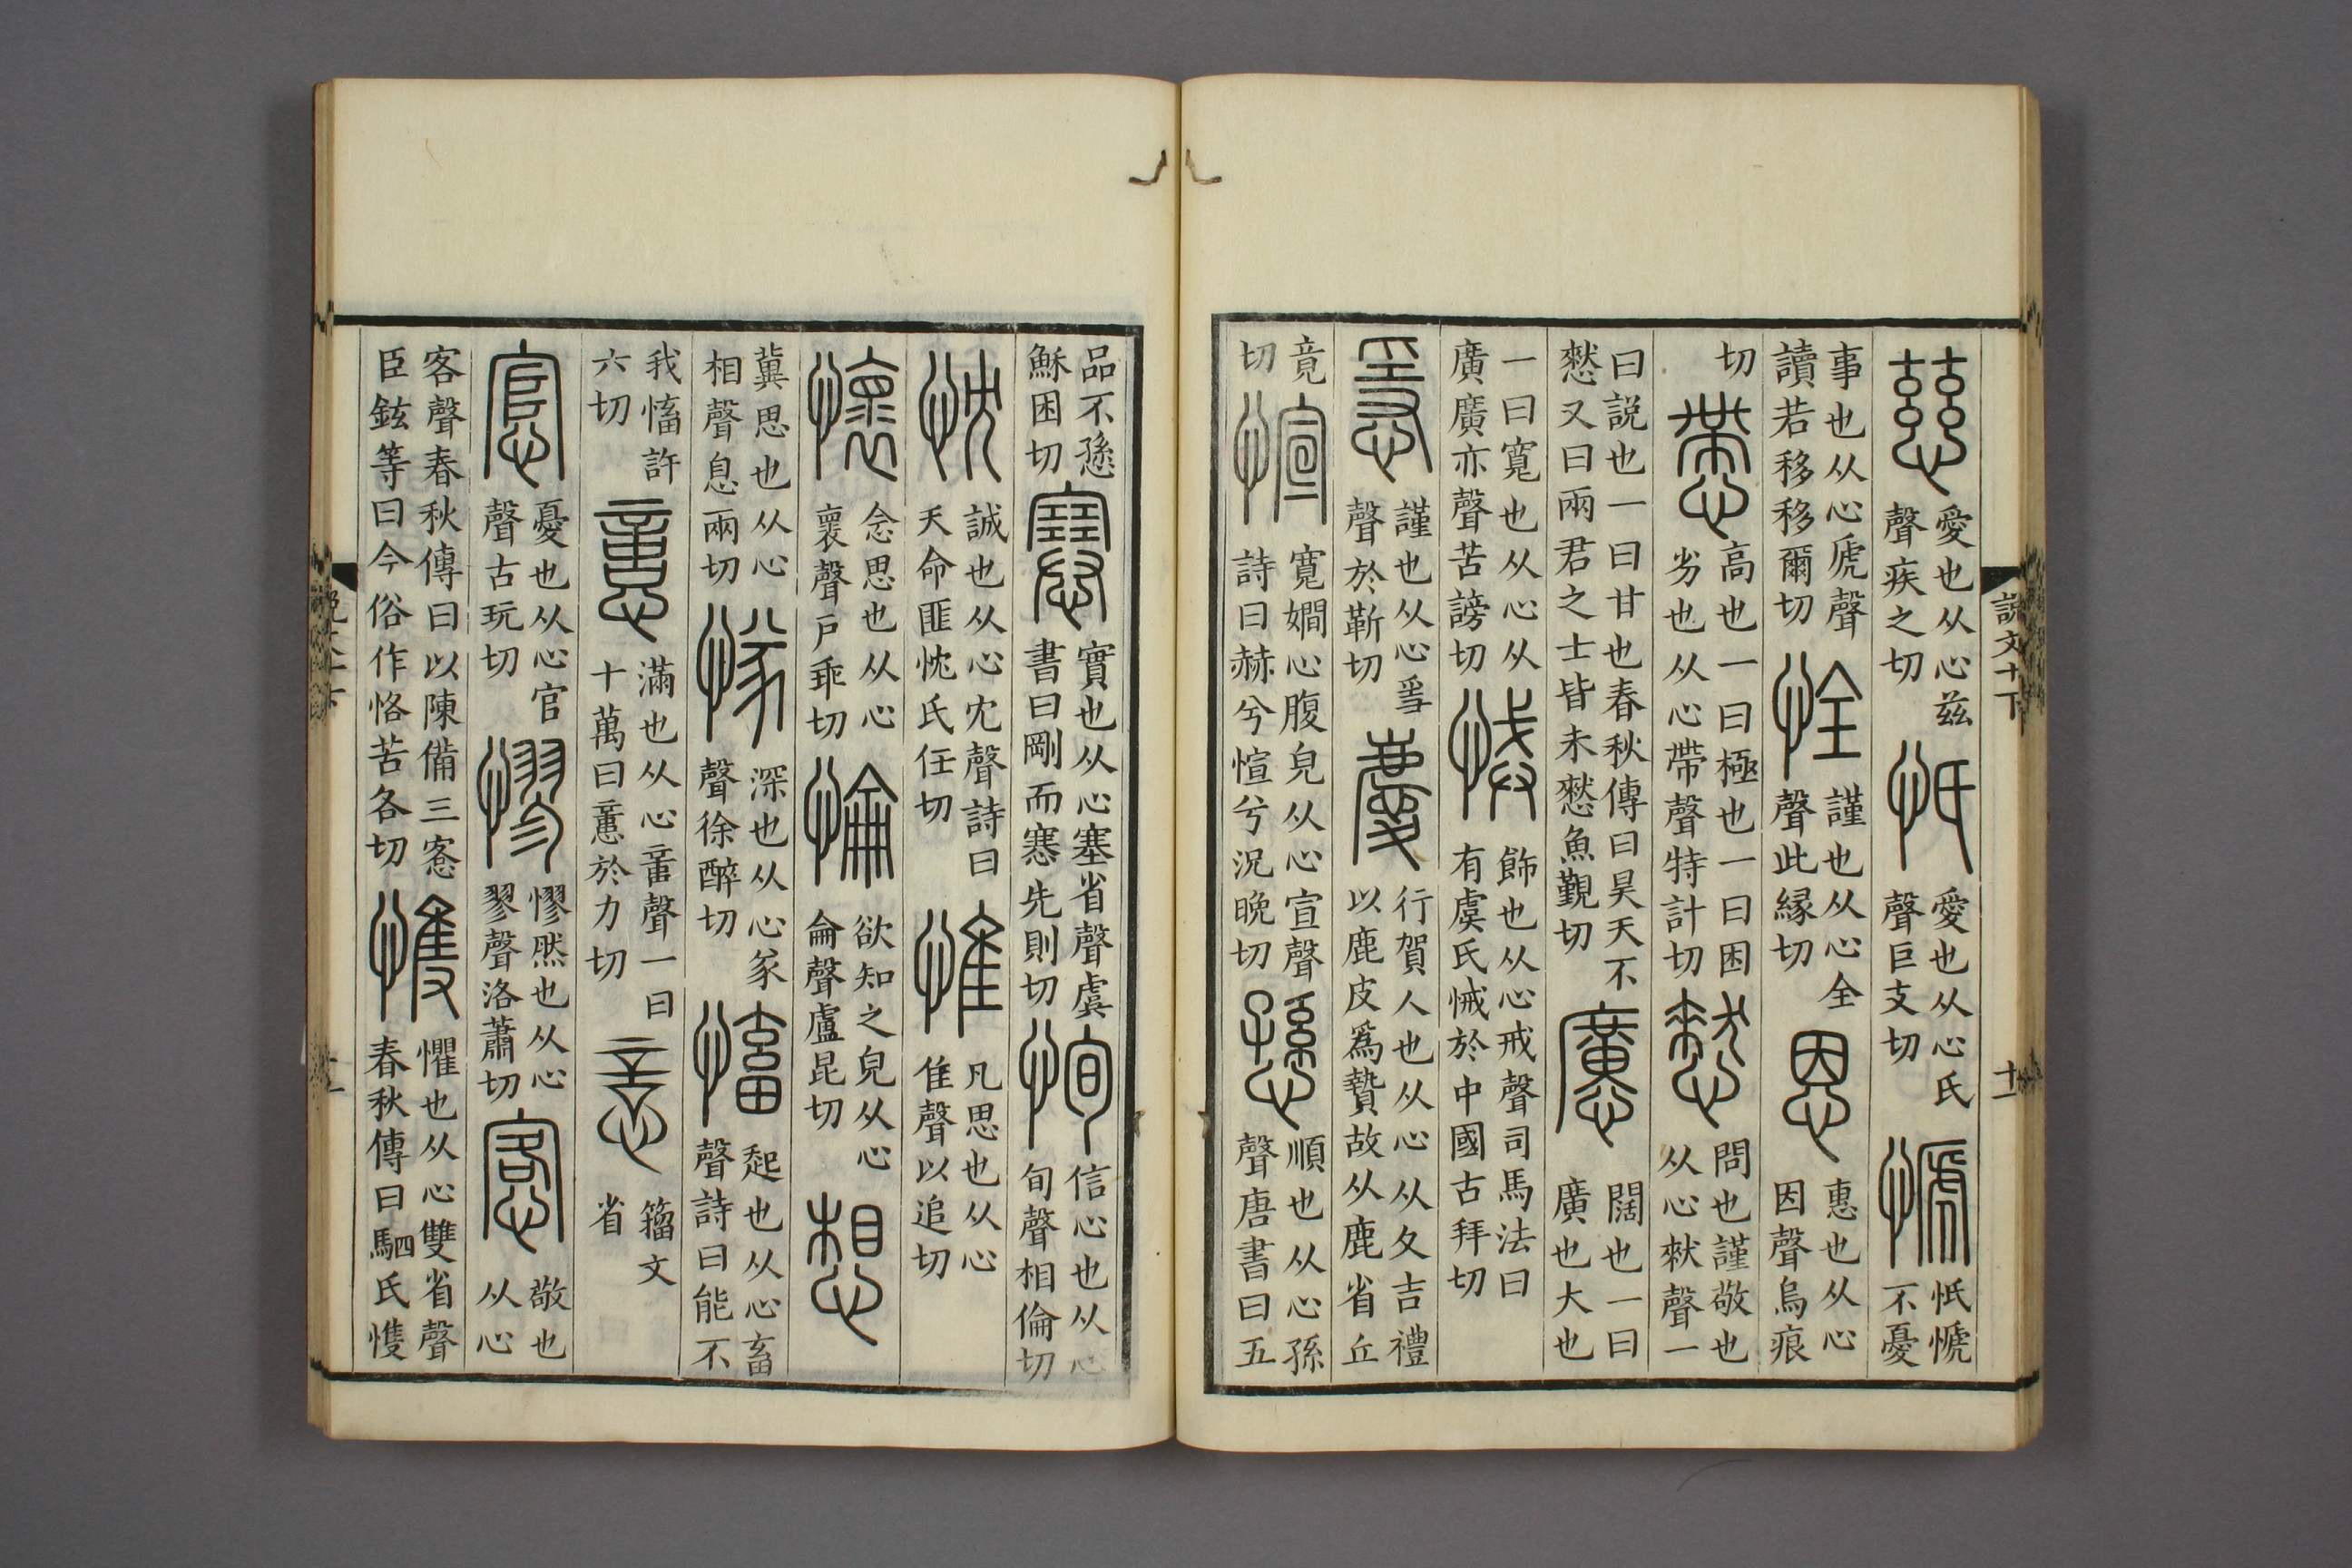 説文十下
十一
慈愛也从心兹聲疾之切忯愛也从心氏聲巨支切㥴忯㥴不憂
事也从心虒聲讀若移移爾切恮謹也从心全聲此縁切恩惠也从心因聲烏痕
切慸高也一曰極也一曰困劣也从心帶聲特計切憖問也謹敬也从心猌聲一
曰説也一曰甘也春秋傳曰昊天不憖又曰兩君之士皆未憖魚覲切懬闊也一曰廣也大也
一曰寬也从心从廣廣亦聲苦謗切悈飾也从心戒聲司馬法曰有虞氏悈於中國古拜切
㥯謹也从心㸒聲於靳切慶行賀人也从心从夊吉禮以鹿皮爲贄故从鹿省丘
竟切愃寬嫺心腹皃从心宣聲詩曰赫兮愃兮況晚切愻順也从心孫聲唐書曰五
品不愻穌困切㥶實也从心塞省聲虞書曰剛而㥶先則切恂信心也从心旬聲相倫切
忱誠也从心冘聲詩曰天命匪忱氏任切惟凡思也从心隹聲以追切
懷念思也从心褱聲戸乖切惀欲知之皃从心侖聲盧昆切想
冀思也从心相聲息兩切㥞深也从心㒸聲徐醉切慉起也从心畜聲詩曰能不
我慉許六切𢡃滿也从心𠶷聲一曰十萬曰𢡃於力切意籀文省
悹憂也从心官聲古玩切憀憀然也从心翏聲洛蕭切愙敬也从心
客聲春秋傳曰以陳備三愙臣鉉等曰今俗作恪苦各切愯懼也从心雙省聲春秋傳曰駟氏愯